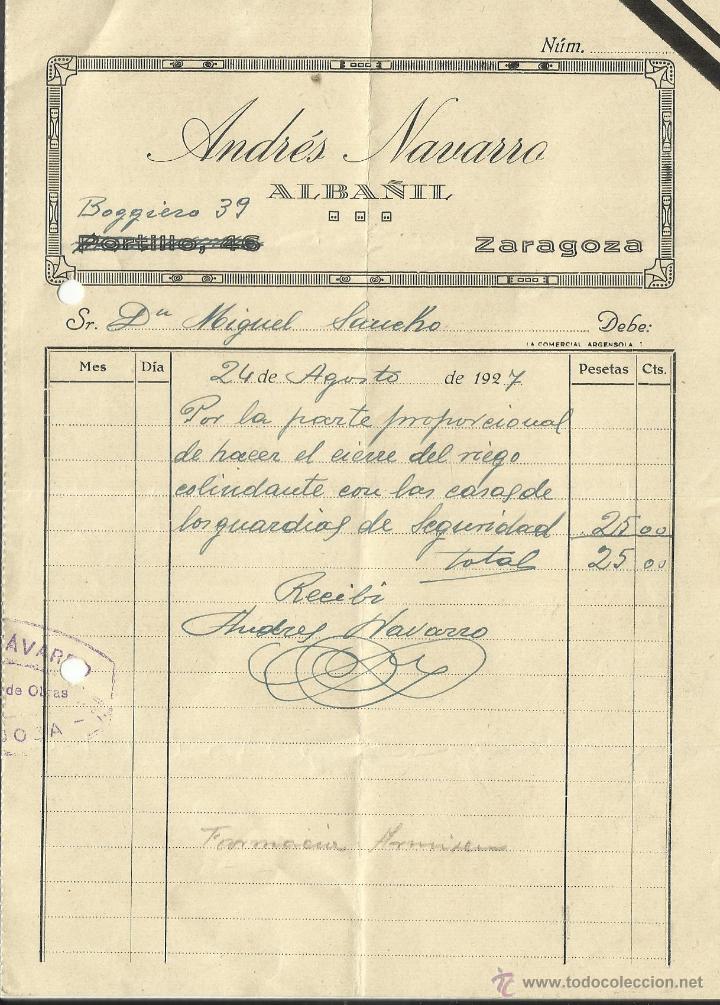 Núm.
Andrés Navarro
ALBAÑIL
Boggiero 39
Portillo, 46 Zaragoza
Sr. Dn Miguel Sancho Debe:
LA COMERCIAL ARGENSOLA
Mes Día 24 de Agosto de 1927 Pesetas Cts.
Por la parte proporcional
de hacer el cierre del riego
colindante con las casas de
los guardias de Seguridad 25 00
Total 25 00
Recibi
Andres Navarro
AVARRO
de Obras
Farmacia
www.todocoleccion.net